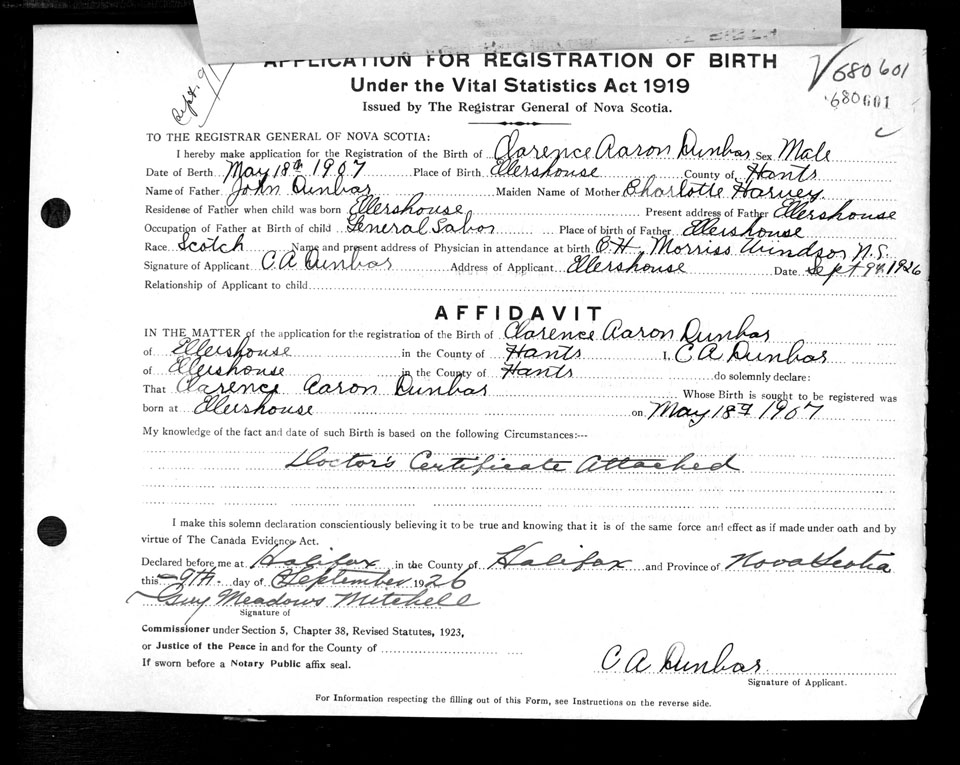 APPLICATION FOR REGISTRATION OF BIRTH
Under the Vital Statistics Act 1919
Issued by The Registrar General of Nova Scotia.
Sept. 9
√680601
680601
TO THE REGISTRAR GENERAL OF NOVA SCOTIA:
I hereby make application for the Registration of the Birth of Clarence Aaron Dunbar Sex Male
Date of Berth May 18th 1907 Place of Birth Ellershouse County of Hants
Name of Father John Dunbar Maiden Name of Mother Charlotte Harvey
Residense of Father when child was born Ellershouse Present address of Father Ellershouse
Occupation of Father at Birth of child General Labor Place of birth of Father Ellershouse
Race Scotch Name and present address of Physician in attendance at birth O.H. Morriss Windsor N.S.
Signature of Applicant C A Dunbar Address of Applicant Ellershouse Date Sept 9th 1926
Relationship of Applicant to child
AFFIDAVIT
IN THE MATTER of the application for the registration of the Birth of Clarence Aaron Dunbar
of Ellershouse in the County of Hants I, C A Dunbar
of Ellershouse in the County of Hants do solemnly declare:
That Clarence Aaron Dunbar Whose Birth is sought to be registered was
born at Ellershouse on May 18th 1907
My knowledge of the fact and date of such Birth is based on the following Circumstances:--
Doctor's Certificate Attached
I make this solemn declaration conscientiously believing it to be true and knowing that it is of the same force and effect as if made under oath and by
virtue of The Canada Evidence Act.
Declared before me at Halifax in the County of Halifax and Province of Nova Scotia
this 9th day of September 1926
Guy Meadows Mitchell
Signature of
Commissioner under Section 5, Chapter 38, Revised Statutes, 1923,
or Justice of the Peace in and for the County of
If sworn before a Notary Public affix seal.
C A Dunbar
Signature of Applicant.
For Information respecting the filling out of this Form, see Instructions on the reverse side.